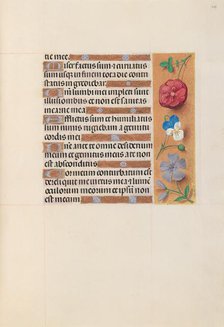 tie mee.
Miser factus sum et curuatus
sum usqz in finem tota die contri
status in grediebar
sum lumbi mei impleti sunt
illusionibus et non est sanitas
in carne mea
Afflictus sum et humiliatus
sum nimis rugiebam a gemitu
cordis mei
ante te omne desiderium
meum et gemitus meus a te non
est absconditus
Cor meum conturbatum est
dereliquit me uirtus mea et lumen
oculorum meorum et ipsum non
est mecum